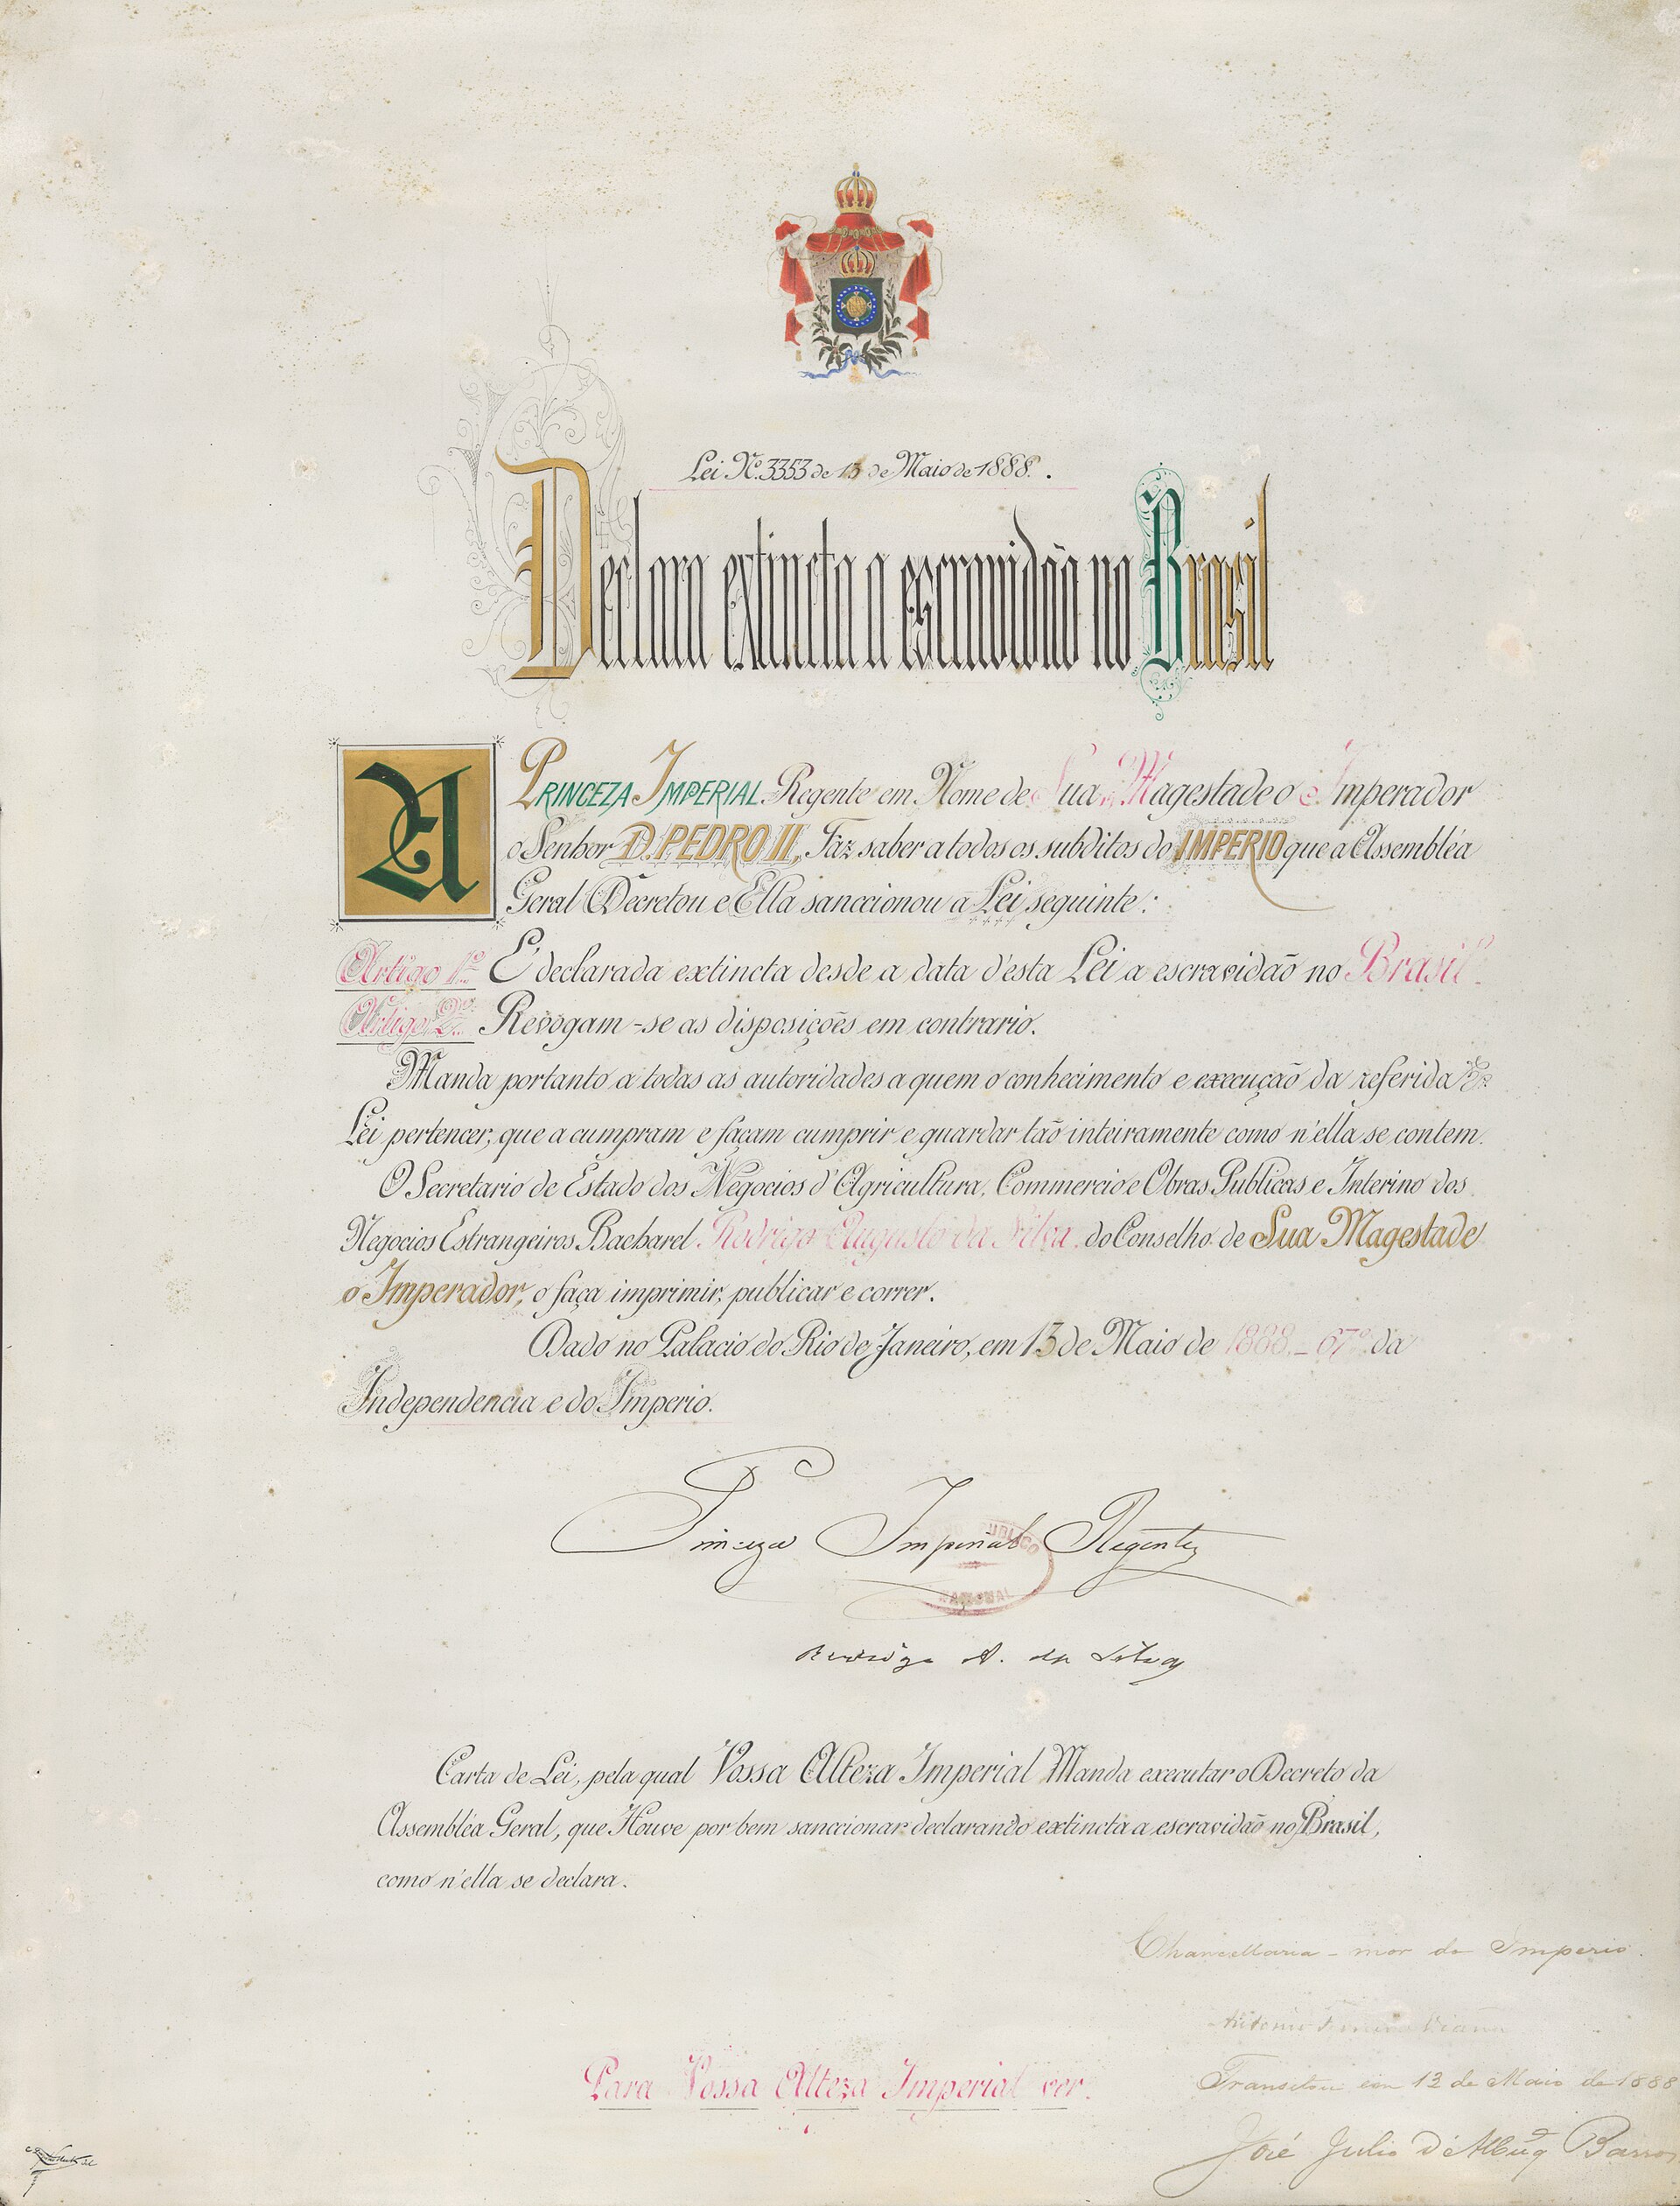 Lei Nº. 3353 de 13 de Maio de 1888.
Declara extincta a escravidão no Brasil
A PRINCEZA IMPERIAL Regente em Nome de Sua Magestade o Imperador
o Senhor D. PEDRO II, Faz saber a todos os subditos do IMPERIO que a Assembléa
Geral Decretou e Ella sanccionou a Lei seguinte:
Artigo 1º. É declarada extincta desde a data d'esta Lei a escravidão no Brasil.
Artigo 2º. Revogam-se as disposições em contrario.
Manda portanto a todas as autoridades a quem o conhecimento e execução da referida
Lei pertencer, que a cumpram e façam cumprir e guardar tão inteiramente como n'ella se contem.
O Secretario de Estado dos Negocios d'Agricultura, Commercio e Obras Publicas e Interino dos
Negocios Estrangeiros Bacharel Rodrigo Augusto da Silva do Conselho de Sua Magestade
o Imperador, o faça imprimir, publicar e correr.
Dado no Palacio do Rio de Janeiro, em 13 de Maio de 1888.-67º da
Independencia e do Imperio.
Princeza Imperial Regente
Rodrigo A. da Silva
Carta de Lei, pela qual Vossa Alteza Imperial Manda executar o Decreto da
Assembléa Geral, que Houve por bem sanccionar declarando extincta a escravidão no Brasil,
como n'ella se declara.
Chancellaria-mor do Imperio.
Antonio Ferreira Vianna
Para Vossa Alteza Imperial ver.
Transitou em 13 de Maio de 1888
José Julio d'Albuqᵉ Barros